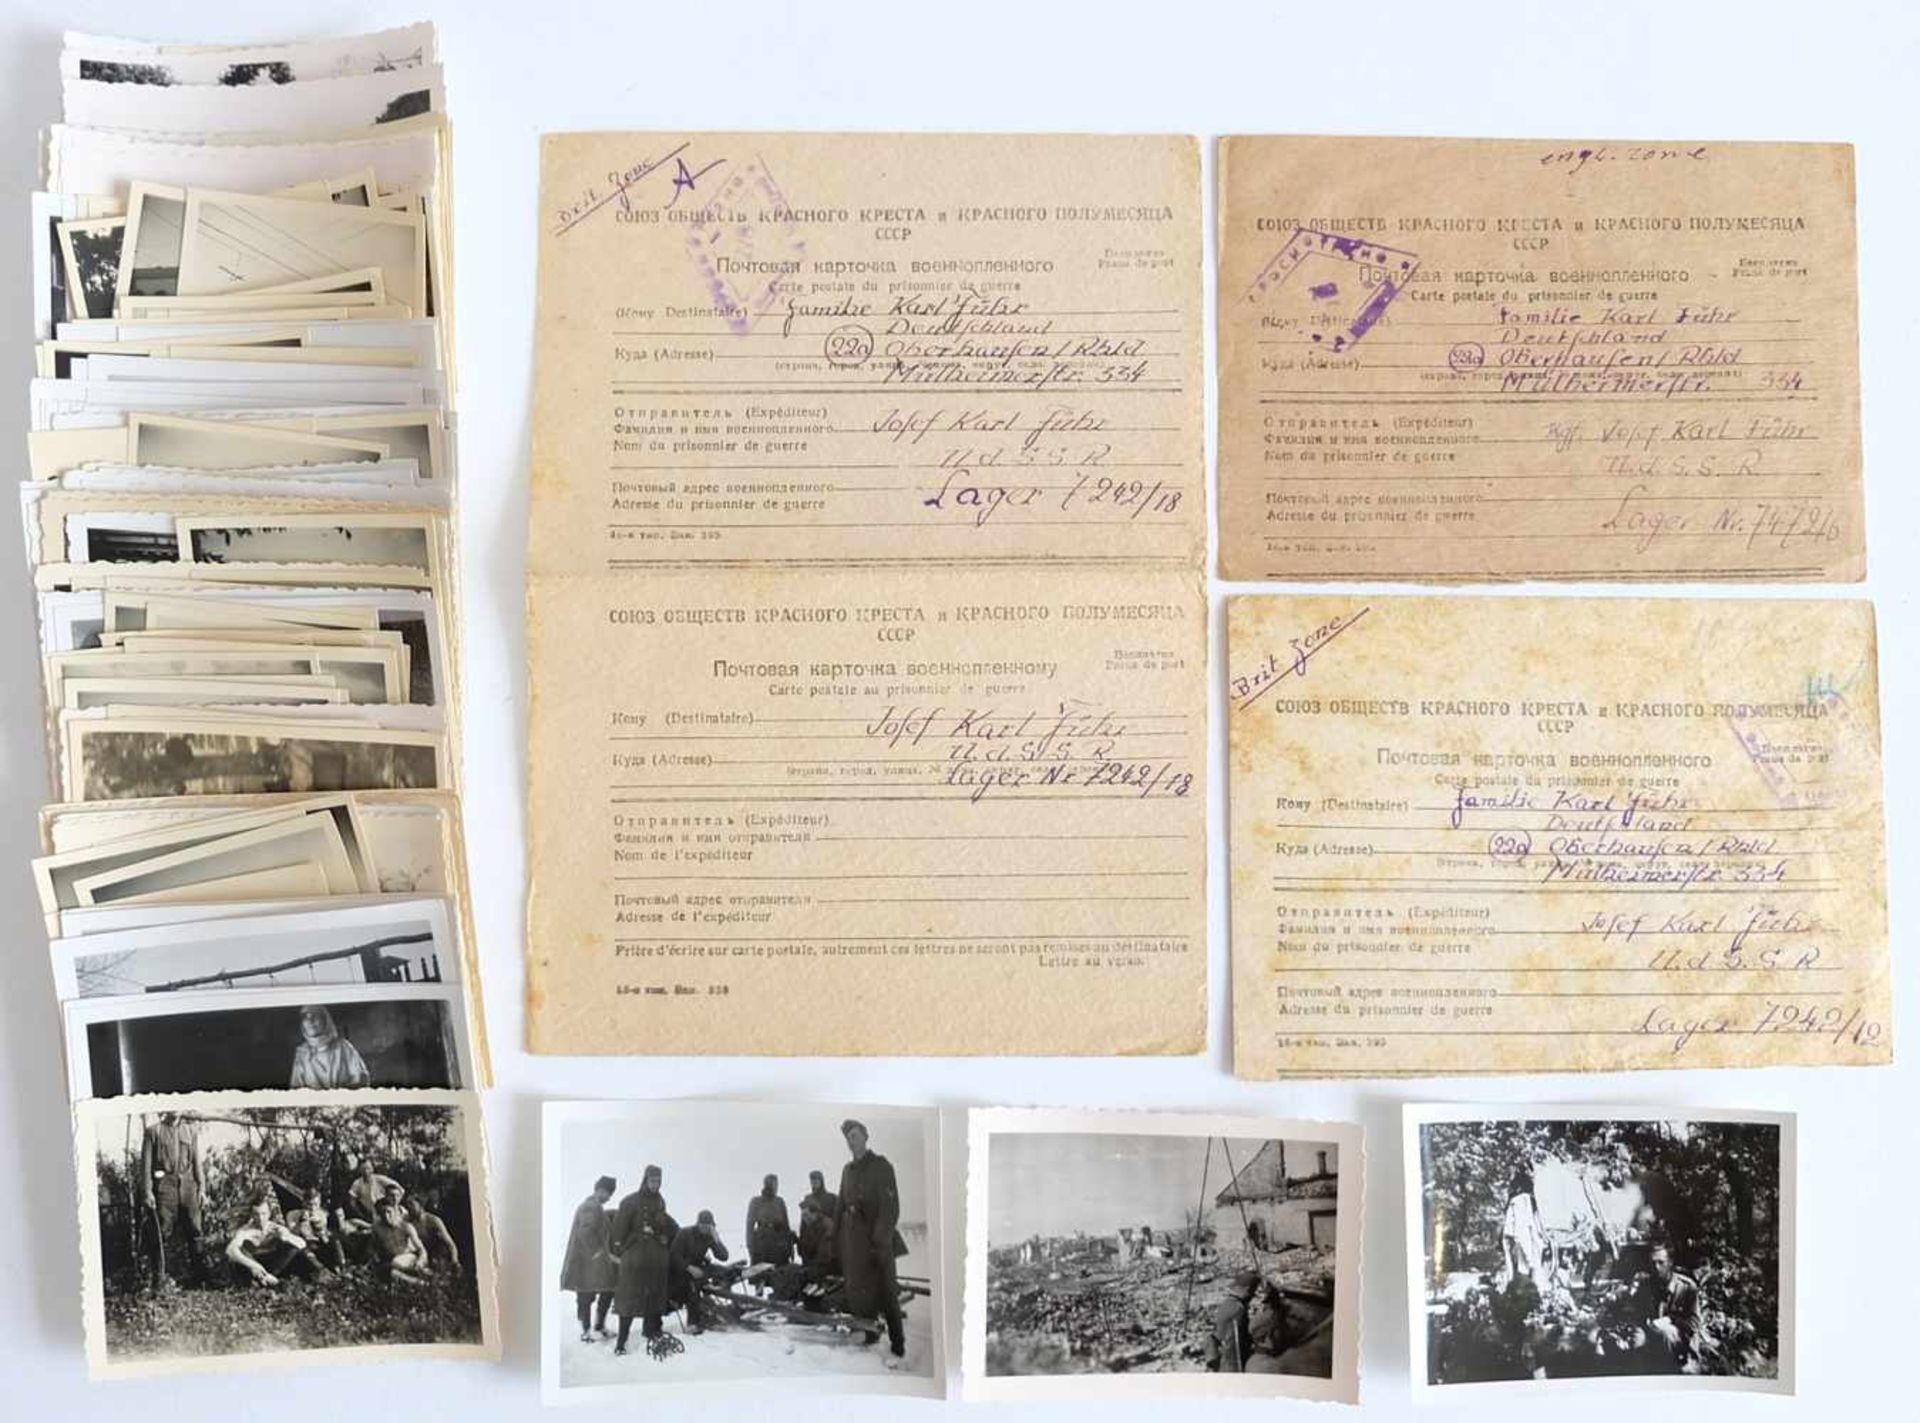 Brit Zone
A
СОЮЗ ОБЩЕСТВ КРАСНОГО КРЕСТА и КРАСНОГО ПОЛУМЕСЯЦА
СССР
Бесплатно
Franc de port
Почтовая карточка военнопленного
Carte postale du prisonnier de guerre
Кому (Destinataire) Familie Karl Führ
Deutschland
Куда (Adresse) 22a Oberhausen/Rhld
Mülheimerstr. 334
Отправитель (Expéditeur)
Фамилия и имя военнопленного Josef Karl Führ
Nom du prisonnier de guerre
U.d.S.S.R
Почтовый адрес военнопленного Lager 7242/18
Adresse du prisonnier de guerre
СОЮЗ ОБЩЕСТВ КРАСНОГО КРЕСТА и КРАСНОГО ПОЛУМЕСЯЦА
СССР
Бесплатно
Franc de port
Почтовая карточка военнопленному
Carte postale au prisonnier de guerre
Кому (Destinataire) Josef Karl Führ
U.d.S.S.R
Куда (Adresse) Lager Nr 7242/18
Отправитель (Expéditeur)
Фамилия и имя отправителя
Nom de l'expéditeur
Почтовый адрес отправителя
Adresse de l'expéditeur
Prière d'écrire sur carte postale, autrement ces lettres ne seront pas remises au destinataire
engl. zone
СОЮЗ ОБЩЕСТВ КРАСНОГО КРЕСТА и КРАСНОГО ПОЛУМЕСЯЦА
СССР
Бесплатно
Franc de port
Почтовая карточка военнопленного
Carte postale du prisonnier de guerre
Familie Karl Führ
Deutschland
Куда (Adresse) 22a Oberhausen/Rhld
Mülheimerstr. 334
Отправитель (Expéditeur)
Фамилия и имя военнопленного Kgf. Josef Karl Führ
Nom du prisonnier de guerre
U.d.S.S.R
Почтовый адрес военнопленного
Adresse du prisonnier de guerre Lager Nr. 7472/6
Brit Zone
СОЮЗ ОБЩЕСТВ КРАСНОГО КРЕСТА и КРАСНОГО ПОЛУМЕСЯЦА
СССР
Почтовая карточка военнопленного
Carte postale du prisonnier de guerre
Кому (Destinataire) Familie Karl Führ
Deutschland
Куда (Adresse) 22a Oberhausen/Rhld
Mülheimerstr. 334
Отправитель (Expéditeur)
Фамилия и имя военнопленного Josef Karl Führ
Nom du prisonnier de guerre
U.d.S.S.R
Почтовый адрес военнопленного
Adresse du prisonnier de guerre Lager 7242/12